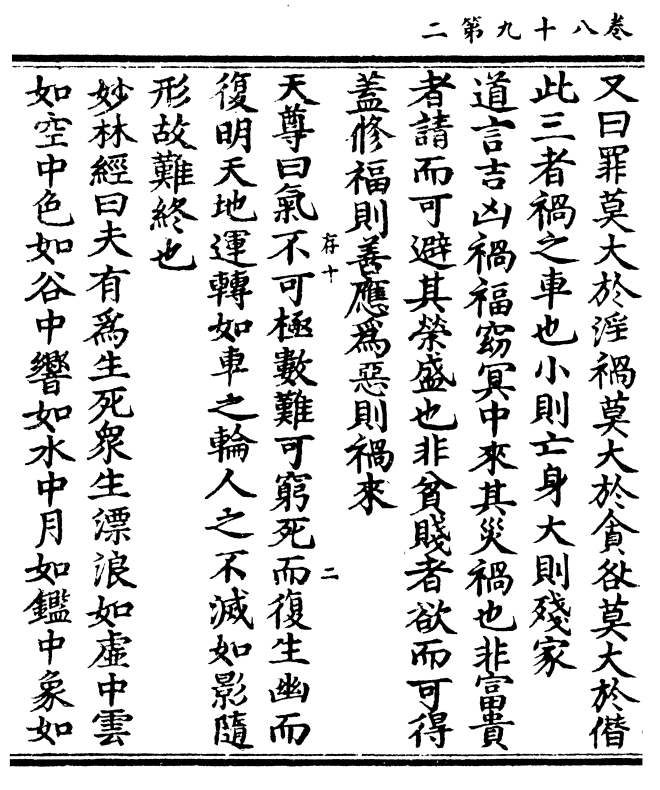 卷八十九第二
又曰罪莫大於淫禍莫大於貪咎莫大於僭
此三者禍之車也小則亡身大則殘家
道言吉凶禍福窈冥中來其災禍也非富貴
者請而可避其榮盛也非貧賤者欲而可得
蓋修福則善應爲惡則禍來
存十
二
天尊曰氣不可極數難可窮死而復生幽而
復明天地運轉如車之輪人之不滅如影隨
形故難終也
妙林經曰夫有爲生死衆生漂浪如虛中雲
如空中色如谷中響如水中月如鑑中象如